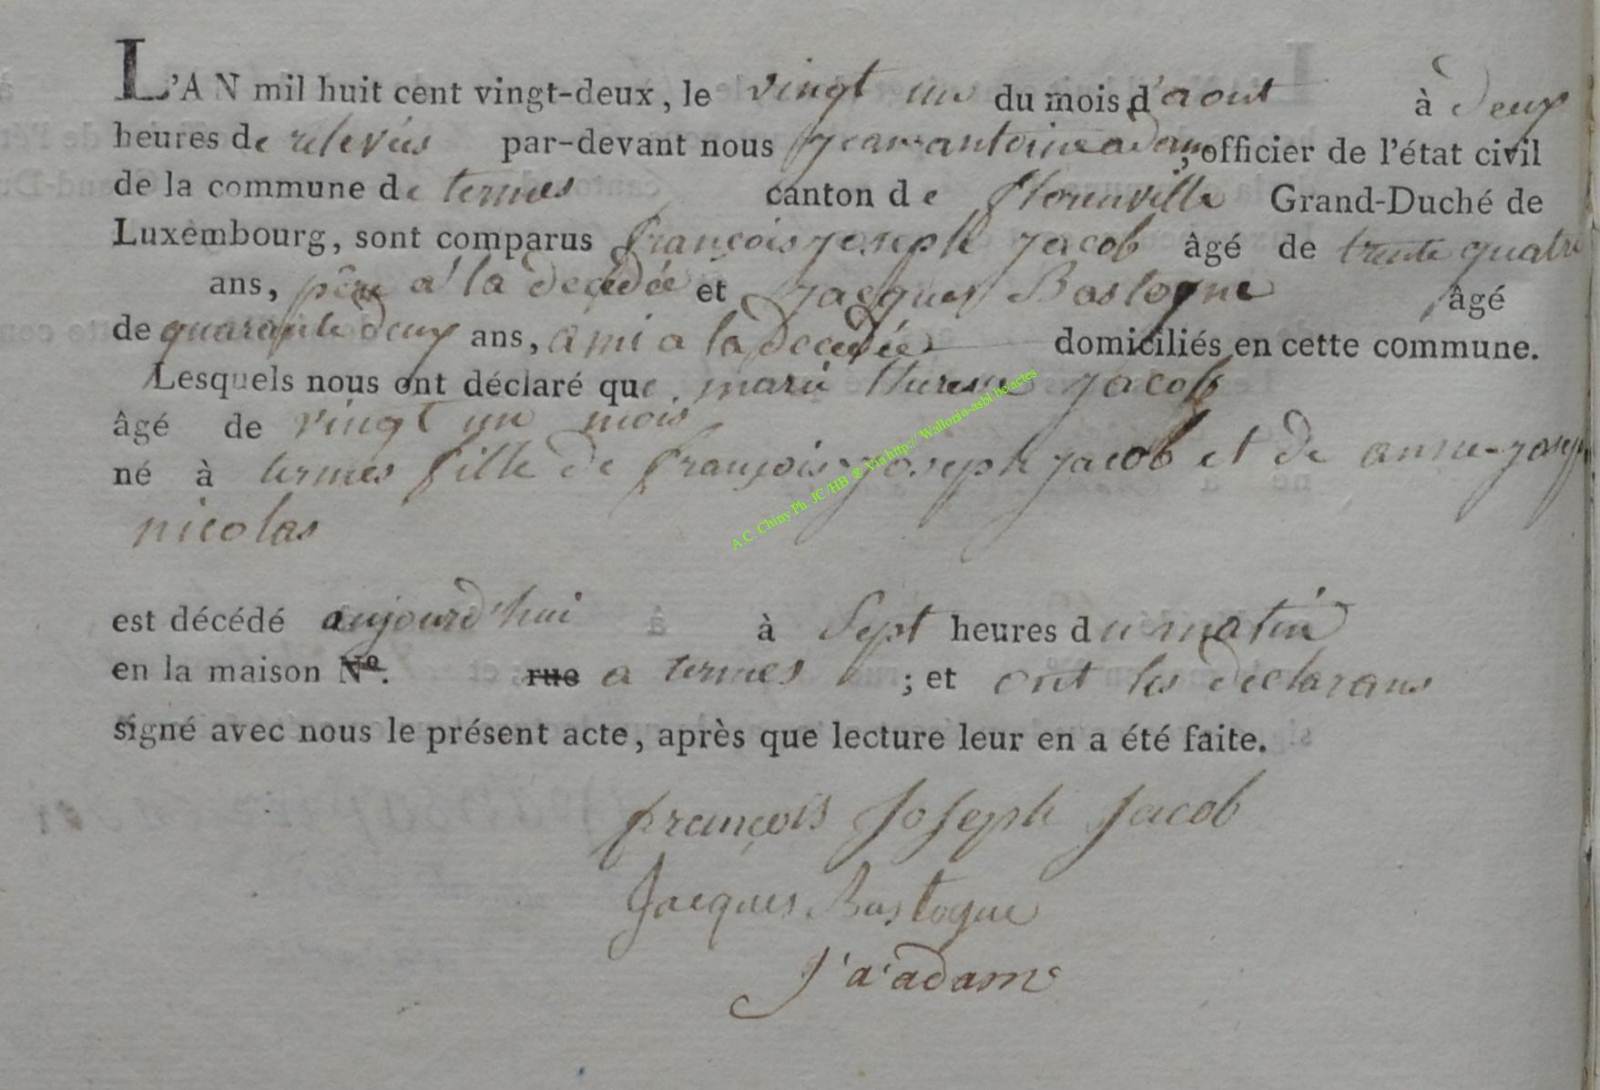 L'AN mil huit cent vingt-deux, le vingt un du mois d'aout à deux
heures de relevées par-devant nous jean antoine adam, officier de l'état civil
de la commune de termes canton de florenville Grand-Duché de
Luxembourg, sont comparus françois joseph jacob âgé de trente quatre
ans, père a la decedée et jacques Bastogne âgé
de quarante deux ans, ami a la decedée domiciliés en cette commune.
Lesquels nous ont déclaré que marie therese jacob
âgé de vingt un mois
né à termes fille de françois joseph jacob et de anne-josep
nicolas
est décédé aujourd'hui à sept heures du matin
en la maison Nº. rue a termes ; et ont les declarans
signé avec nous le présent acte, après que lecture leur en a été faite.
françois Joseph Jacob
Jacques Bastogne
j'a'adam
A.C. Chiny Ph. JC/HB ® Via http:// Wallonia-asbl.be/actes